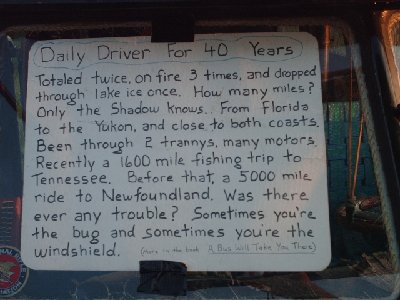 Daily Driver For 40 Years
Totaled twice, on fire 3 times, and dropped
through lake ice once. How many miles?
Only the Shadow knows. From Florida
to the Yukon, and close to both coasts.
Been through 2 trannys, many motors.
Recently a 1600 mile fishing trip to
Tennessee. Before that, a 5000 mile
ride to Newfoundland. Was there
ever any trouble? Sometimes you're
the bug and sometimes you're the
windshield. (more in the book A Bus Will Take You There)